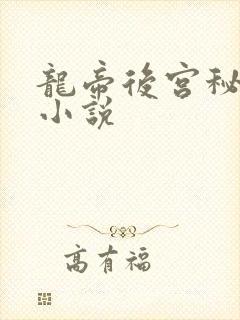 龍帝後宮秘
小說
高有福